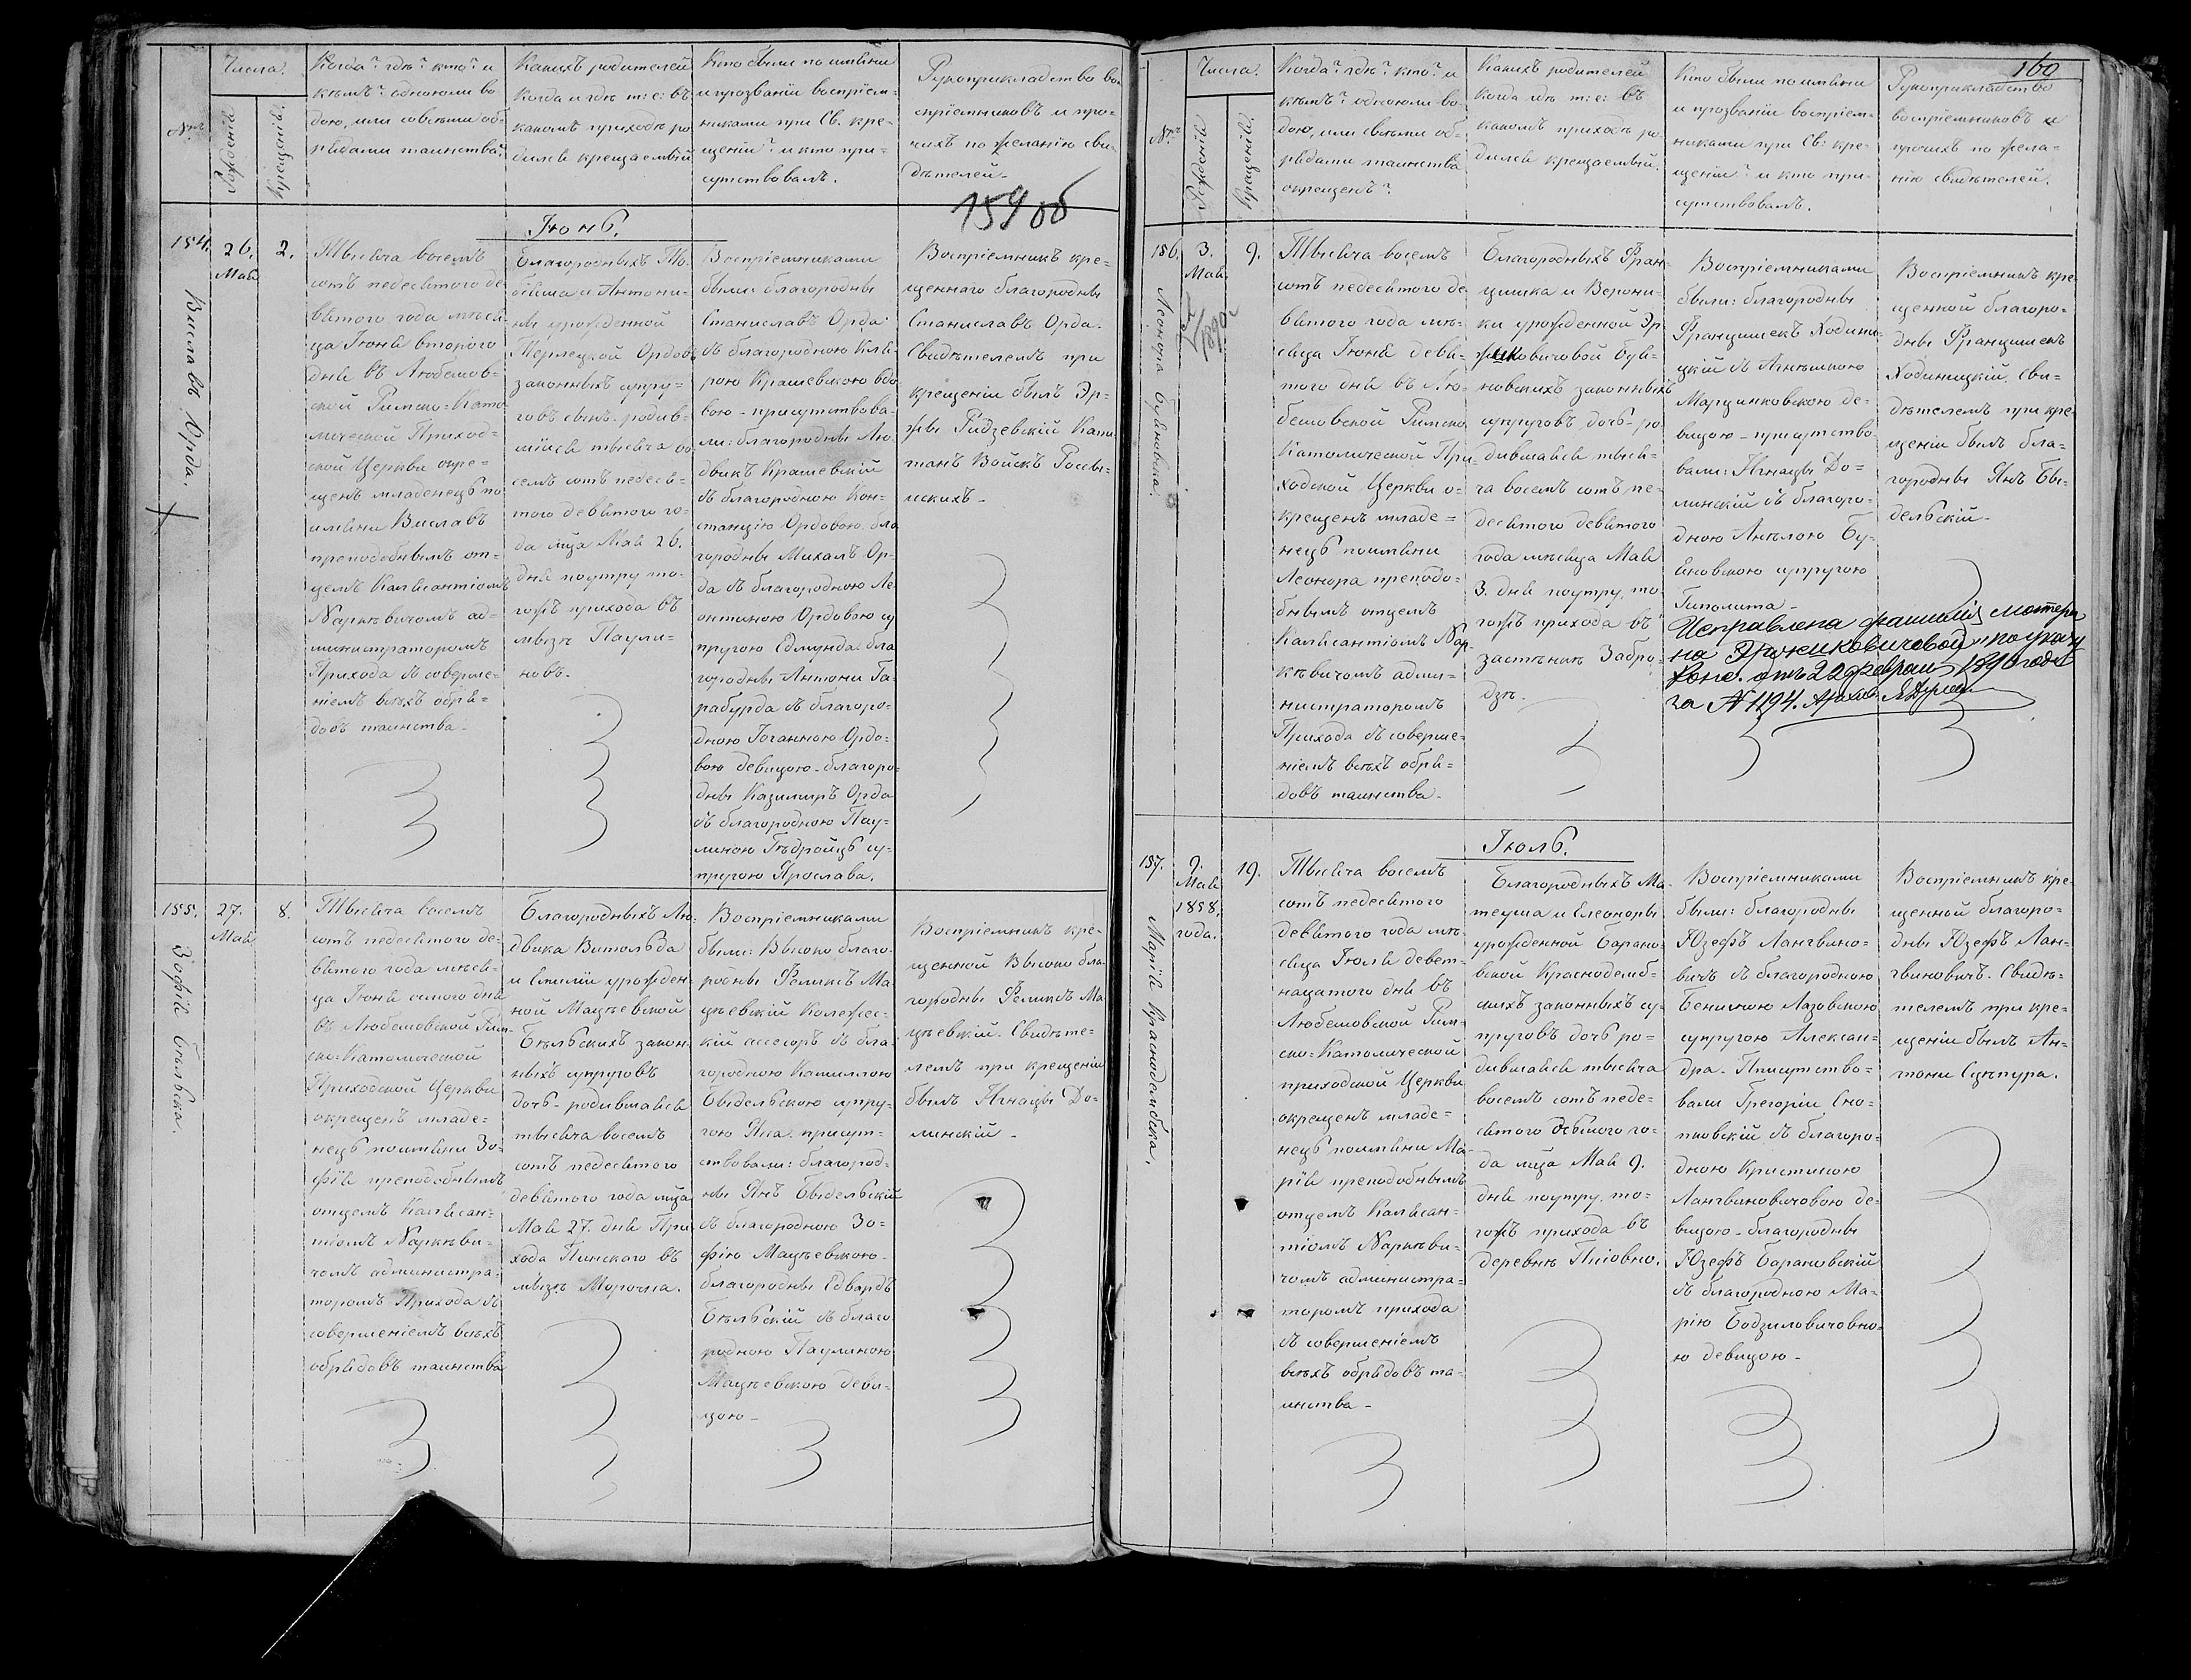 Числа.
№
Рожденія
Крещенія.
Когда? гдѣ? кто? и
кѣмъ? однοюли во
дою, или совсѣми об-
рядами таинства?
Какихъ родителей
когда и гдѣ т: е: въ
какомъ приходѣ ро
дился крещаемый
Кто были по имени
и прозванію воспріем-
никами при Св. кре-
щеніи? и кто при-
сутствовалъ.
Рукоприкладство во-
спріемниковъ и про-
чихъ по желанію сви-
дѣтелей.
159 об
Іюнь.
154.
Виславъ Орда.
26.
Мая
2.
Тысяча восемъ
сотъ педесятого де
вятого года мѣся-
ца Іюня второго
дня въ Любешов-
ской Римско-Като
лической Приход-
ской Церкви окре-
щенъ младенецъ по
имени Виславъ
преподобнымъ от-
цемъ Каликсантіомъ
Наркевичомъ ад-
министраторомъ
Прихода съ соверше-
ніемъ всѣхъ обря-
довъ таинства.
Благородныхъ То-
біяша и Антони-
ны урожденной
Терлецкой Ордовъ
законныхъ супру-
говъ сынъ родив-
шійся тысяча во
семъ сотъ педеся-
того девятого го-
да мца Мая 26.
дня поутру то-
гожъ прихода въ
мызѣ Паули-
новѣ.
Воспріемниками
были: благородны
Станиславъ Орда
съ благородною Кля-
рою Крашевскою вдо
вою - присутствова-
ли: благородны Лю
двикъ Крашевскій
съ благородною Кон-
станцію Ордовою. бла
городны Михалъ Ор-
да съ благородною Ле
онтиною Ордовою су
пругою Едмунда. бла
городны Антони Га-
рабурда съ благоро-
дною Іоганною Ордо-
вою девицою - благоро-
дны Казимиръ Орда
съ благородною Пау-
линою Гедройцъ су-
пругою Ярослава.
Воспріемникъ кре-
щеннаго благородны
Станиславъ Орда.
Свидѣтелемъ при
крещеніи былъ Эр-
жы Гидзевскій Капи-
танъ Войскъ Россы-
искихъ -
155.
Зофія Бѣльска.
27.
Мая
8.
Тысяча восемъ
сотъ педесятого де-
вятого года мѣся-
ца Іюня осмого дня
въ Любешовской Рим-
ско-Католической
Приходской Церкви
окрещенъ младе-
нецъ поимени Зо-
фія преподобнымъ
отцемъ Каликсан-
тіомъ Наркеви-
чомъ администра-
торомъ Прихода съ
совершеніемъ всѣхъ
обрядовъ таинства
Благородныхъ Лю-
двика Витольда
и Емиліи урожден-
ной Мацѣевской
Бѣльскихъ закон-
ныхъ супруговъ
дочь - родившаяся
тысяча восемъ
сотъ педесятого
девятого года мца
Мая 27. дня При-
хода Пинскаго въ
мызѣ Морочна.
Воспріемниками
были: Высоко благо-
родны Феликсъ Ма
цѣевскій Колежс-
кій ассесоръ съ бла-
городною Камиллою
Быдельскою супру-
гою Яна. присут-
ствовали: благород-
ны Янъ Быдельскій
съ благородною Зо-
фію Мацѣевскою.
благородны Едвардъ
Бѣльскій съ благо
родною Паулиною
Мацѣевскою деви-
цою -
Воспріемникъ кре-
щенной Высоко бла-
городны Феликсъ Ма
цѣевскій. Свидѣте-
лемъ при крещеніи
былъ Игнацы До-
линскій -
160
Числа.
№
Рожденія
Крещенія.
Когда? гдѣ? кто? и
кѣмъ? однοюли во-
дою, или всѣми об-
рядами таинства
окрещенъ?
Какихъ родителей
когда гдѣ т: е: въ
какомъ приходѣ ро-
дился крещаемый.
Кто были по имени
и прозванію воспріем-
никами при Св: кре-
щеніи? и кто при-
сутствовалъ.
Рукоприкладство
воспріемниковъ и
прочихъ по жела-
нію свидѣтелей.
156.
Леонора Буяновска.
3.
Мая
9.
Тысяча восемъ
сотъ педесятого де
вятого года мѣ-
сяца Іюня девя-
того дня въ Лю-
бешовской Римско
Католической При-
ходской Церкви о-
крещенъ младе-
нецъ поимени
Леонора преподо-
бнымъ отцемъ
Каликсантіомъ Нар-
кевичомъ адми-
нистраторомъ
Прихода съ соверше-
ніемъ всѣхъ обря-
довъ таинства -
Благородныхъ Фран-
цишка и Верони-
ки урожденной Эр
жиковичовой Буя-
новскихъ законныхъ
супруговъ дочь - ро-
дившаяся тыся-
ча восемъ сотъ пе-
десятого девятого
года мѣсяца Мая
3. дня поутру, то-
гожъ прихода въ
застѣнкѣ Забро-
дзѣ.
Воспріемниками
были: благородны
Францишекъ Ходини-
цкій съ Агнѣшкою
Марцинковскою де-
вицою - присутство
вали: Игнацы До-
линскій съ благоро-
дною Анѣлою Бу-
яновскою супругою
Гиполита -
Исправлена фамилія матери
на „Эржиковичовой" по указу
Конс. отъ 22 февраля 1890 года
за № 1194.
Воспріемникъ кре
щенной благоро-
дны Францишекъ
Ходиницкій. Сви-
дѣтелемъ при кре
щеніи былъ бла-
городны Янъ Бы-
дельскій -
Іюль.
157.
Марія Краснодембска.
9.
Мая
1858.
года.
19.
Тысяча восемъ
сотъ педесятого
девятого года мѣ-
сяца Іюля девят-
нацатого дня въ
Любешовской Рим-
ско-Католической
приходской Церкви
окрещенъ младе-
нецъ поимени Ма-
рія преподобнымъ
отцемъ Каликсан-
тіомъ Наркеви-
чомъ администра-
торомъ прихода
съ совершеніемъ
всѣхъ обрядовъ та-
инства -
Благородныхъ Ма-
теуша и Елеоноры
урожденной Барано-
вской Краснодемб-
скихъ законныхъ су-
пруговъ дочь ро-
дившаяся тысяча
восемъ сотъ педе-
сятого осьмого го-
да мца Мая 9.
дня поутру, то-
гожъ прихода въ
деревнѣ Гніовно.
Воспріемниками
были: благородны
Юзефъ Лангвино-
вичъ съ благородною
Бенигною Лазовскою
супругою Алексан-
дра. Присутство-
вали Грегоріи Сно-
пковскій съ благоро-
дною Кристиною
Лангвиновичовою де-
вицою - благородны
Юзефъ Барановскій
съ благородною Ма-
рію Бодзиловичовно-
ю девицою -
Воспріемникъ кре
щенной благоро-
дны Юзефъ Лан-
гвиновичъ. Свидѣ-
телемъ при кре-
щеніи былъ Ан-
тони Сцепура.